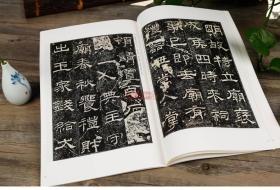 明故特立廟褒
成侯四時來祠
事已即去廟有
常人掌
領請置百石
一人典主守
廟春秋饗禮財
出王家錢給犬